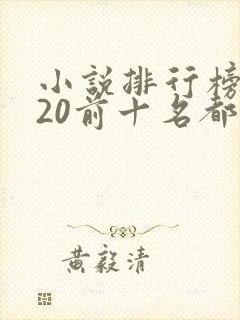 小說排行榜
20前十名都
黃毅清